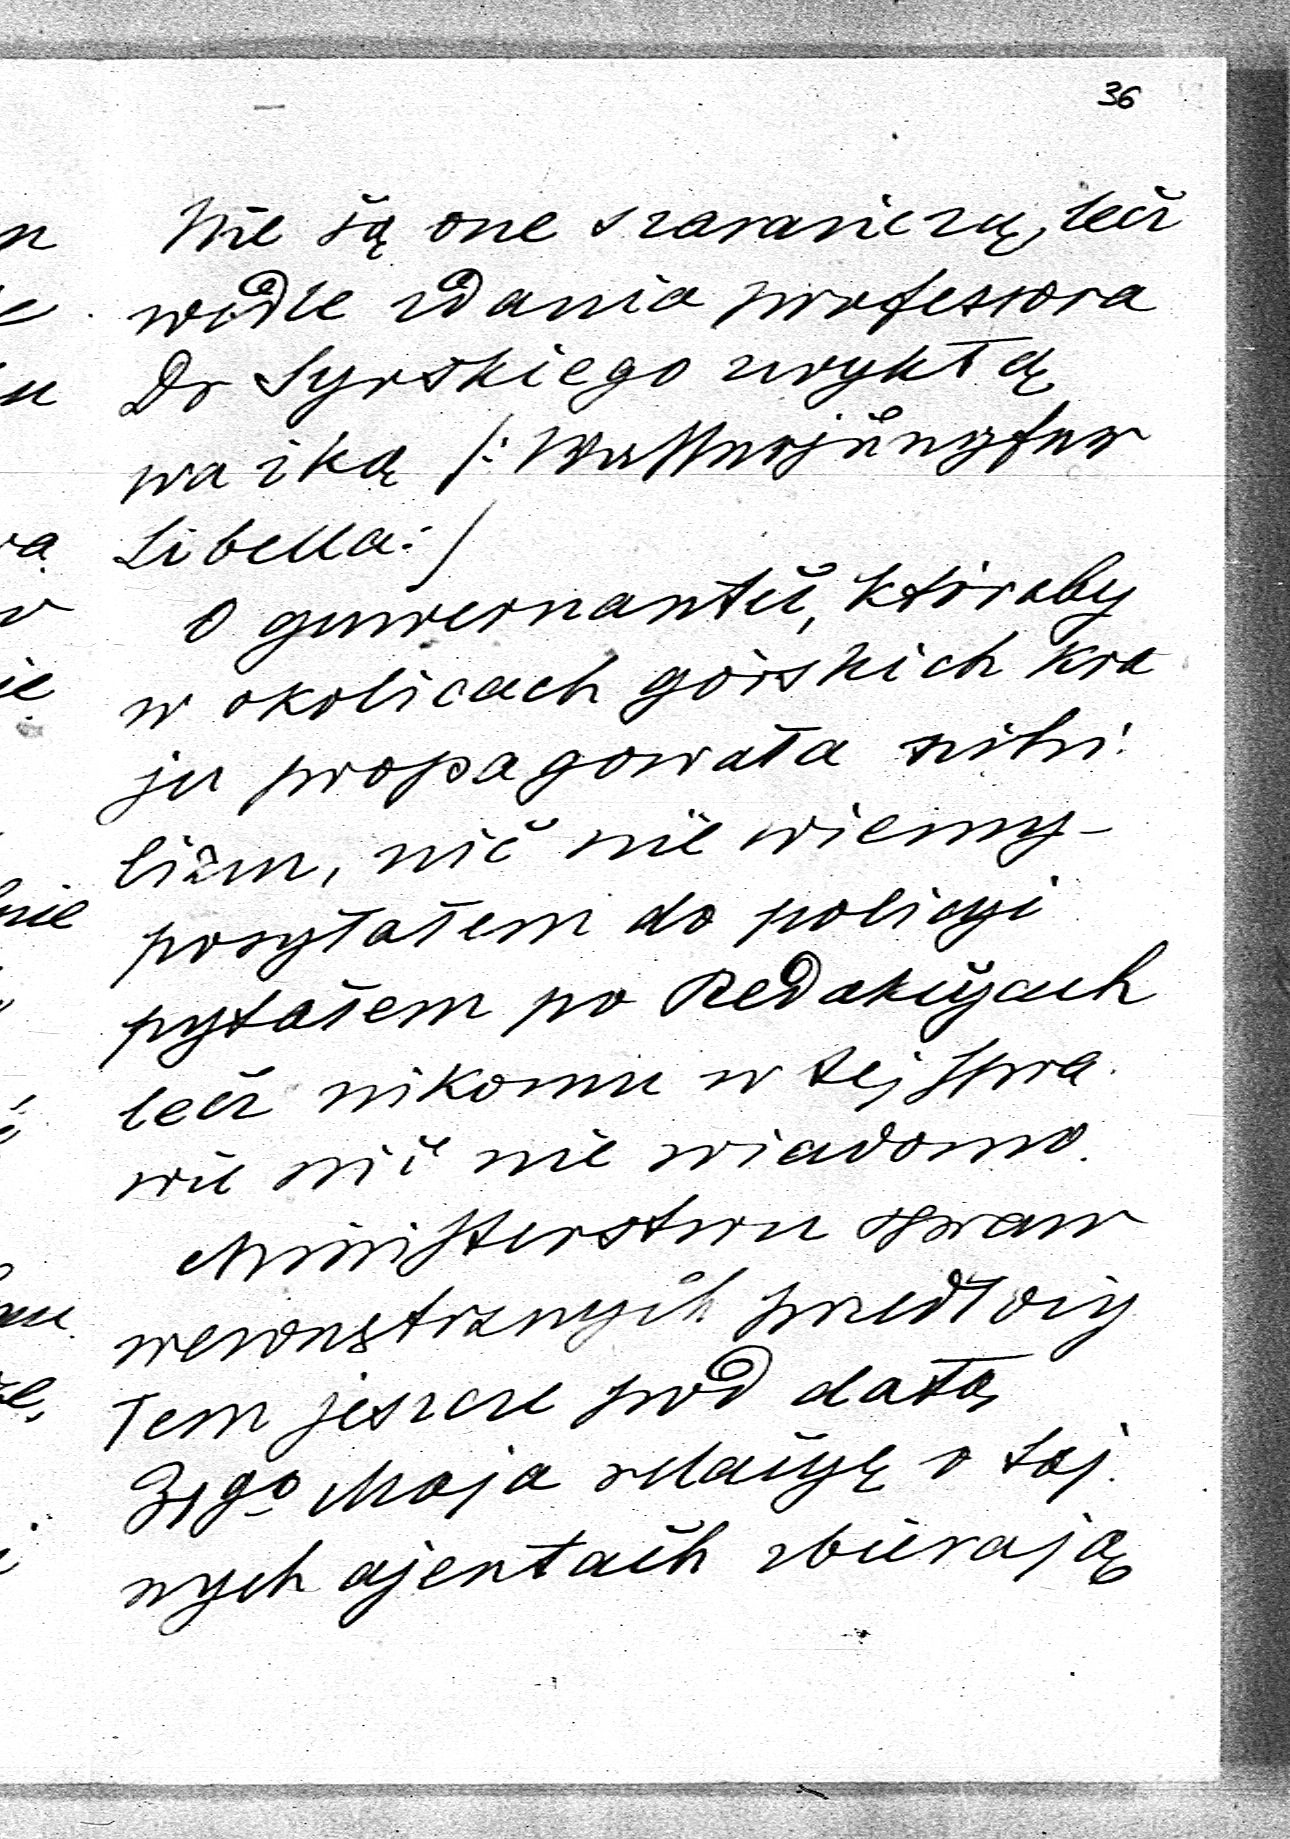 36
Nie są one szarańczą, lecz
wedle zdania professora
Dr Syrskiego zwykłą
ważką /: Wasserjüngfer
Libella :/
O guwernantce, któraby
w okolicach górskich kra
ju propagowała nihi
lizm, nic nie wiemy -
posyłałem do policyi
pytałem po Redakcyach
lecz nikomu w tej spra
wie nic nie wiadomo.
Ministerstwu spraw
wewnętrznych przedłoży
łem jeszcze pod datą
31go Maja relacyę o taj
nych ajentach zbierają